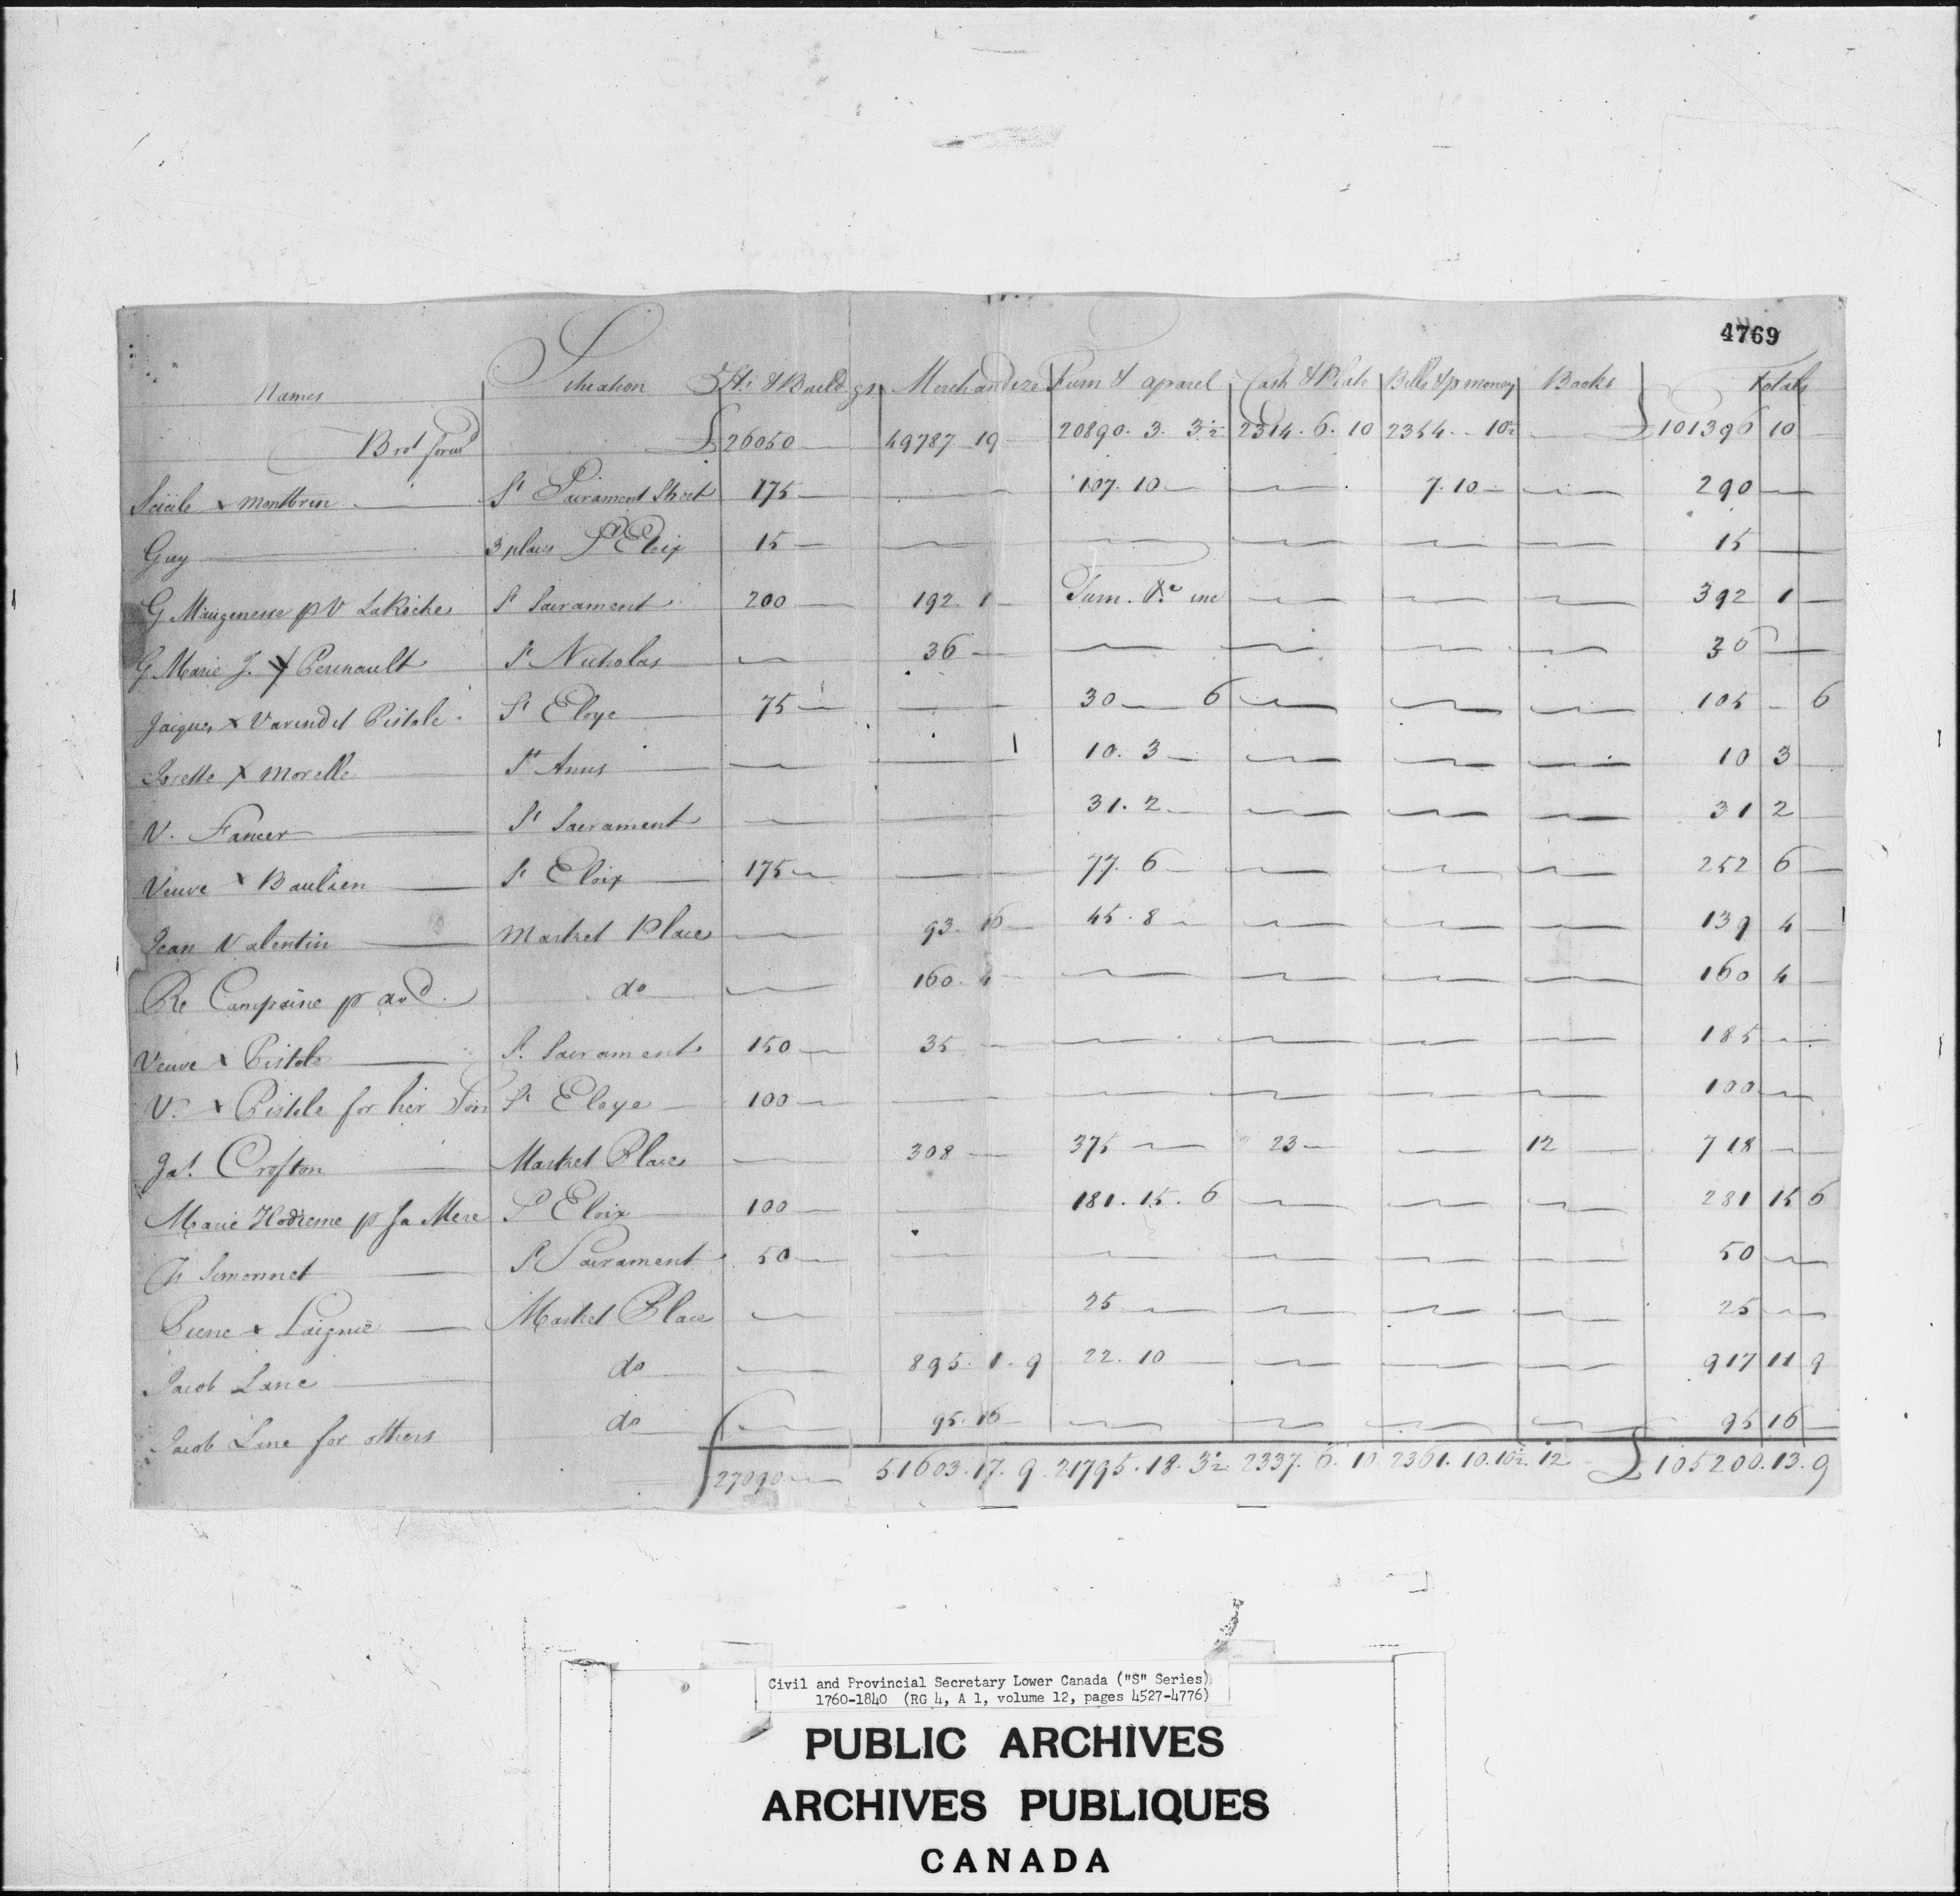 4769
Names Situation Hs & Buildgs Merchandize Furn & aparel Cash & Plate Bills & p money Books Totals
Brot forwd £26050 — 49787 19 — 20890. 3. 3½ 2314. 6. 10 2354. - 10½ — £101396 10 —
& montbrun — St Sacrament Street 175 — — 107. 10 — — 7. 10 — — 290 —
Guy — 3 places St Eloix 15 — — — — — — 15 —
G Maugenesse p V LaRoche St Sacrament 200 — 192. 1 — Furn. &c inc — — — 392 1 —
G Marie J. Perinault St Nicholas — — 36 — — — — — 36 —
Jaques x Varin dit Pistole St Eloye — 75 — — 30 — 6 — — — 105 - 6
Josette x Morelle St Anns — — — 10. 3 — — — — 10 3 —
V. Fancer — St Sacrament — — 31. 2 — — — — 31 2 —
Veuve x Baulien — St Eloix — 175 — — 77. 6 — — — — 252 6 —
Jean Valentin — Market Place — 93. 16 — 45. 8 — — — — 139 4 —
Re Campaine p do — 160. 4 — — — — — 160 4 —
Veuve x Pistole — St. Sacrament 150 — 35 — — — — — 185 —
V. x Pistole for her Son St Eloye — 100 — — — — — — 100 —
Jas. Crofton — Market Place — 308 — 375 — 23 — — 12 — 718 —
Marie Hodieme p sa Mere St Eloix — 100 — — 181. 15. 6 — — — 281 15 6
Simonnet — St Sacrament 50 — — — — — — 50 —
Pierre x Laignie — Market Place — — 25 — — — — 25 —
Jacob Lane — do — — 895. 1. 9 22. 10 — — — — 917 11 9
Jacob Lane for others do — — 95. 16 — — — — — 95 16 —
£27090 — 51603. 17. 9 21795. 18. 3½ 2337. 6. 10 2361. 10. 10½ 12 - £105200. 13. 9
Civil and Provincial Secretary Lower Canada ("S" Series)
1760-1840 (RG 4, A 1, volume 12, pages 4527-4776)
PUBLIC ARCHIVES
ARCHIVES PUBLIQUES
CANADA